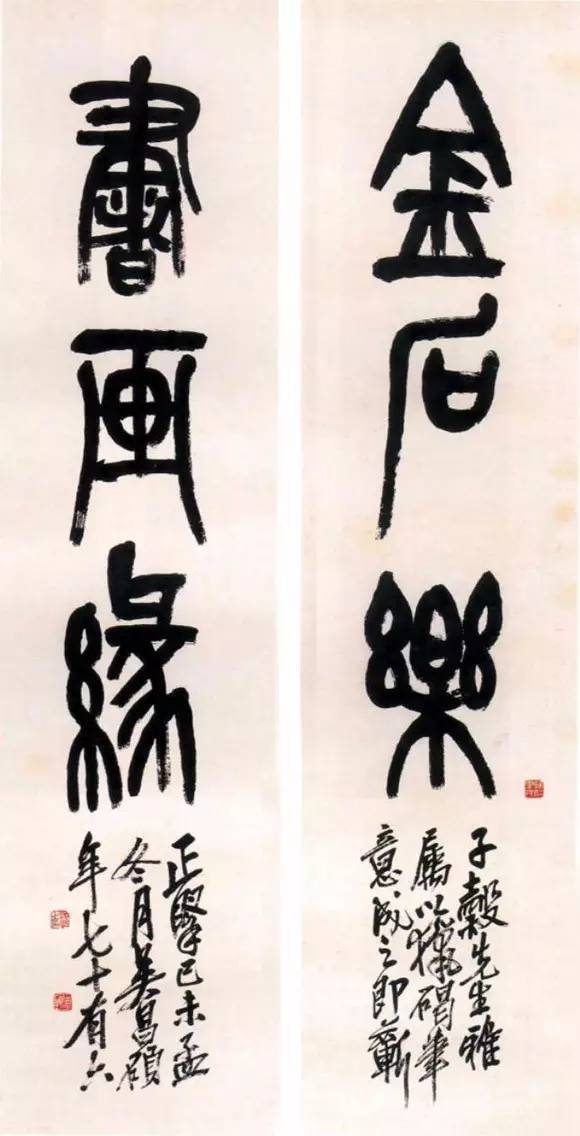 金石樂
子穀先生雅
屬以獵碣筆
意成之即蘄
書画緣
正掔己未孟
冬月吳昌碩
年七十有六